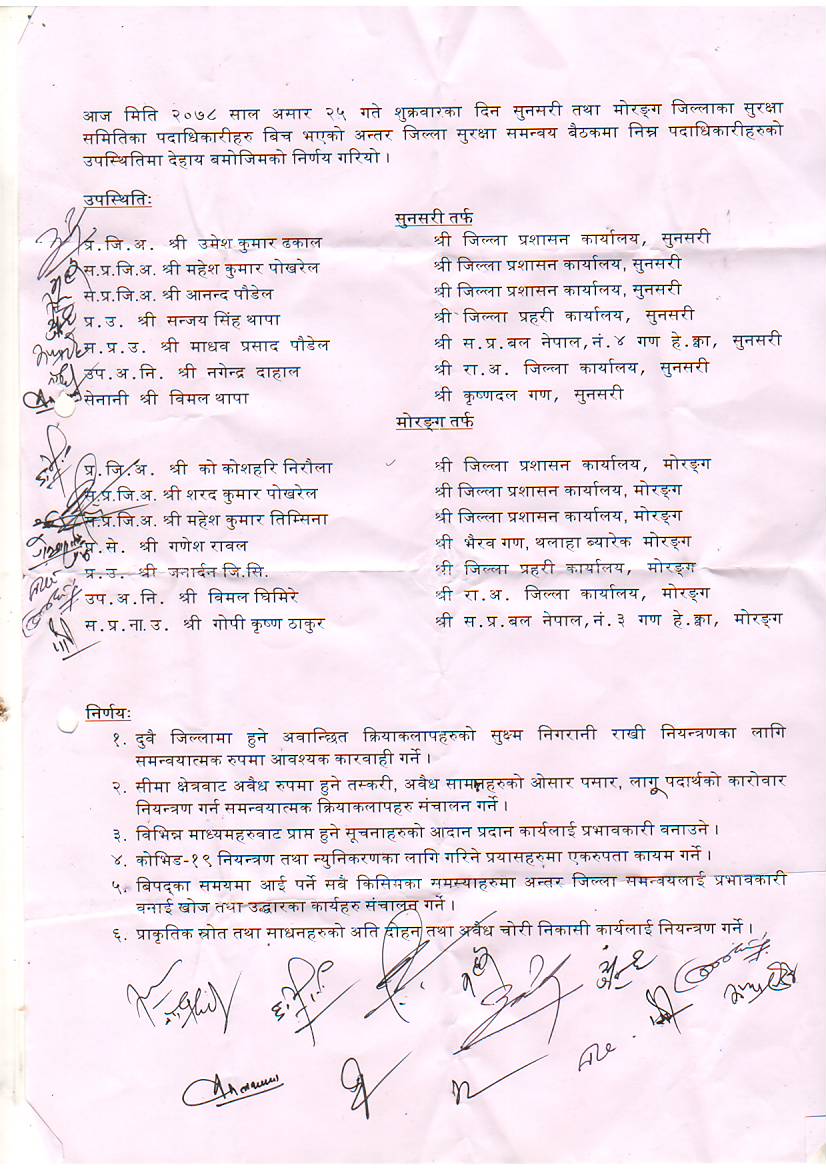 आज मिति २०७८ साल असार २५ गते शुक्रवारका दिन सुनसरी तथा मोरङ्ग जिल्लाका सुरक्षा
समितिका पदाधिकारीहरु बिच भएको अन्तर जिल्ला सुरक्षा समन्वय बैठकमा निम्न पदाधिकारीहरुको
उपस्थितिमा देहाय बमोजिमको निर्णय गरियो।
उपस्थितिः
सुनसरी तर्फ
प्र.जि.अ. श्री उमेश कुमार ढकाल श्री जिल्ला प्रशासन कार्यालय, सुनसरी
स.प्र.जि.अ. श्री महेश कुमार पोखरेल श्री जिल्ला प्रशासन कार्यालय, सुनसरी
स.प्र.जि.अ. श्री आनन्द पौडेल श्री जिल्ला प्रशासन कार्यालय, सुनसरी
प्र.उ. श्री सन्जय सिंह थापा श्री जिल्ला प्रहरी कार्यालय, सुनसरी
स.प्र.उ. श्री माधव प्रसाद पौडेल श्री स.प्र.बल नेपाल,नं.४ गण हे.क्वा, सुनसरी
उप.अ.नि. श्री नगेन्द्र दाहाल श्री रा.अ. जिल्ला कार्यालय, सुनसरी
सेनानी श्री विमल थापा श्री कृष्णदल गण, सुनसरी
मोरङ्ग तर्फ
प्र.जि.अ. श्री को कोशहरि निरौला श्री जिल्ला प्रशासन कार्यालय, मोरङ्ग
स.प्र.जि.अ श्री शरद कुमार पोखरेल श्री जिल्ला प्रशासन कार्यालय, मोरङ्ग
स.प्र.जि.अ श्री महेश कुमार तिम्सिना श्री जिल्ला प्रशासन कार्यालय, मोरङ्ग
प्र.से. श्री गणेश रावल श्री भैरव गण, थलाहा ब्यारेक मोरङ्ग
प्र.उ. श्री जनार्दन जि.सि. श्री जिल्ला प्रहरी कार्यालय, मोरङ्ग
उप.अ.नि. श्री विमल घिमिरे श्री रा.अ. जिल्ला कार्यालय, मोरङ्ग
स.प्र.ना.उ. श्री गोपी कृष्ण ठाकुर श्री स.प्र.बल नेपाल,नं.३ गण हे.क्वा, मोरङ्ग
निर्णयः
१. दुवै जिल्लामा हुने अवान्छित क्रियाकलापहरुको सुक्ष्म निगरानी राखी नियन्त्रणका लागि
समन्वयात्मक रुपमा आवश्यक कारवाही गर्ने।
२. सीमा क्षेत्रवाट अवैध रुपमा हुने तस्करी, अवैध सामानहरुको ओसार पसार, लागू पदार्थको कारोवार
नियन्त्रण गर्न समन्वयात्मक क्रियाकलापहरु संचालन गर्ने।
३. विभिन्न माध्यमहरुवाट प्राप्त हुने सूचनाहरुको आदान प्रदान कार्यलाई प्रभावकारी वनाउने।
४. कोभिड-१९ नियन्त्रण तथा न्युनिकरणका लागि गरिने प्रयासहरुमा एकरुपता कायम गर्ने।
५. बिपद्का समयमा आई पर्ने सबै किसिमका समस्याहरुमा अन्तर जिल्ला समन्वयलाई प्रभावकारी
वनाई खोज तथा उद्धारका कार्यहरु संचालन गर्ने।
६. प्राकृतिक स्रोत तथा साधनहरुको अति दोहन तथा अवैध चोरी निकासी कार्यलाई नियन्त्रण गर्ने।